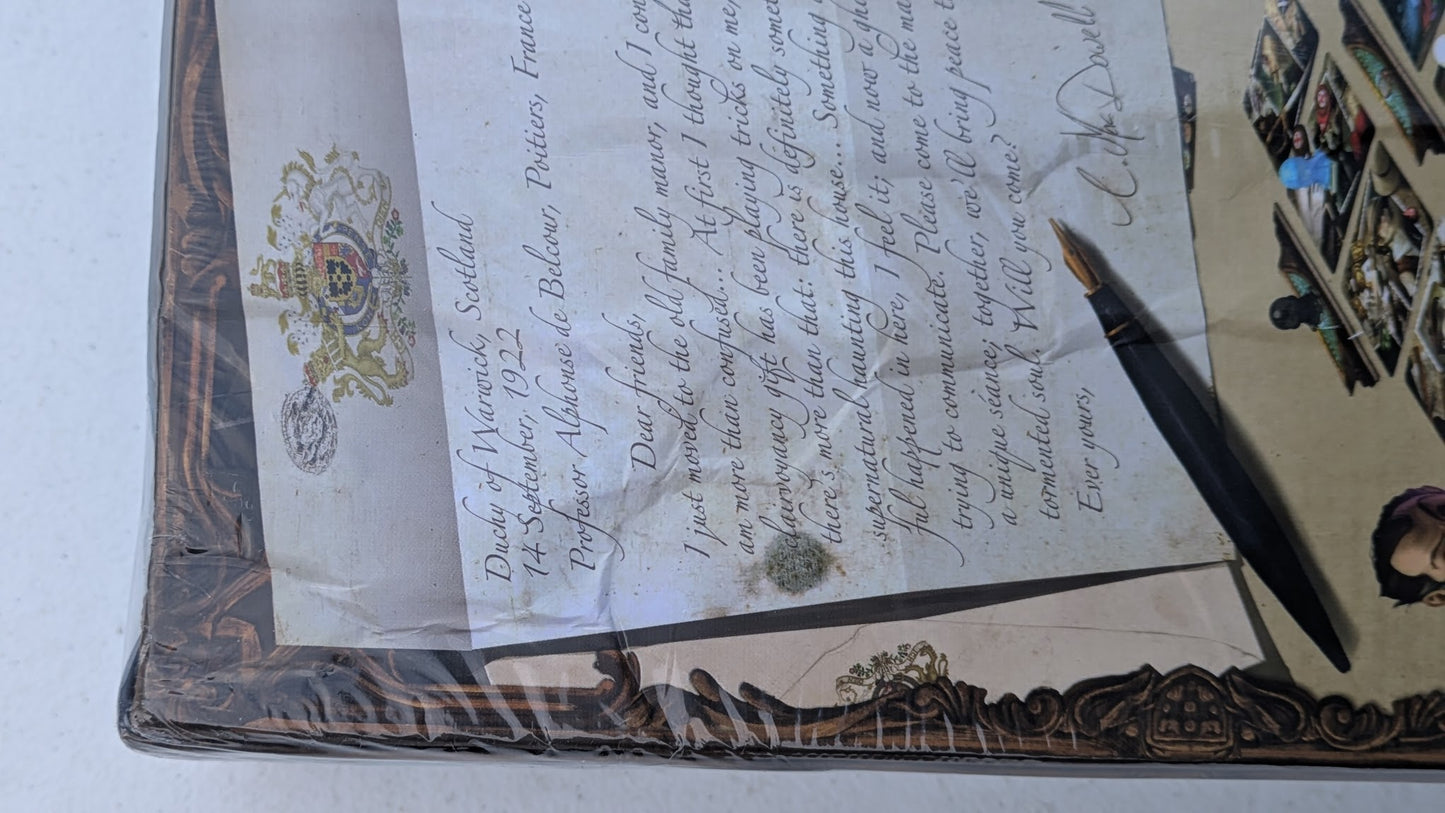 Duchy of Warwick, Scotland
14 September, 1922
Professor Alphonse de Belcour, Poitiers, France
Dear friends,
I just moved to the old family manor, and I
am more than confused... At first I thought
clairvoyancy gift has been playing tricks on me,
there's more than that: there is definitely
supernatural haunting this house... Something
ful happened in here, I feel it; and now a
trying to communicate. Please come to the
a unique séance; together, we'll bring peace
tormented soul. Will you come?
Ever yours,
C. MacDowell